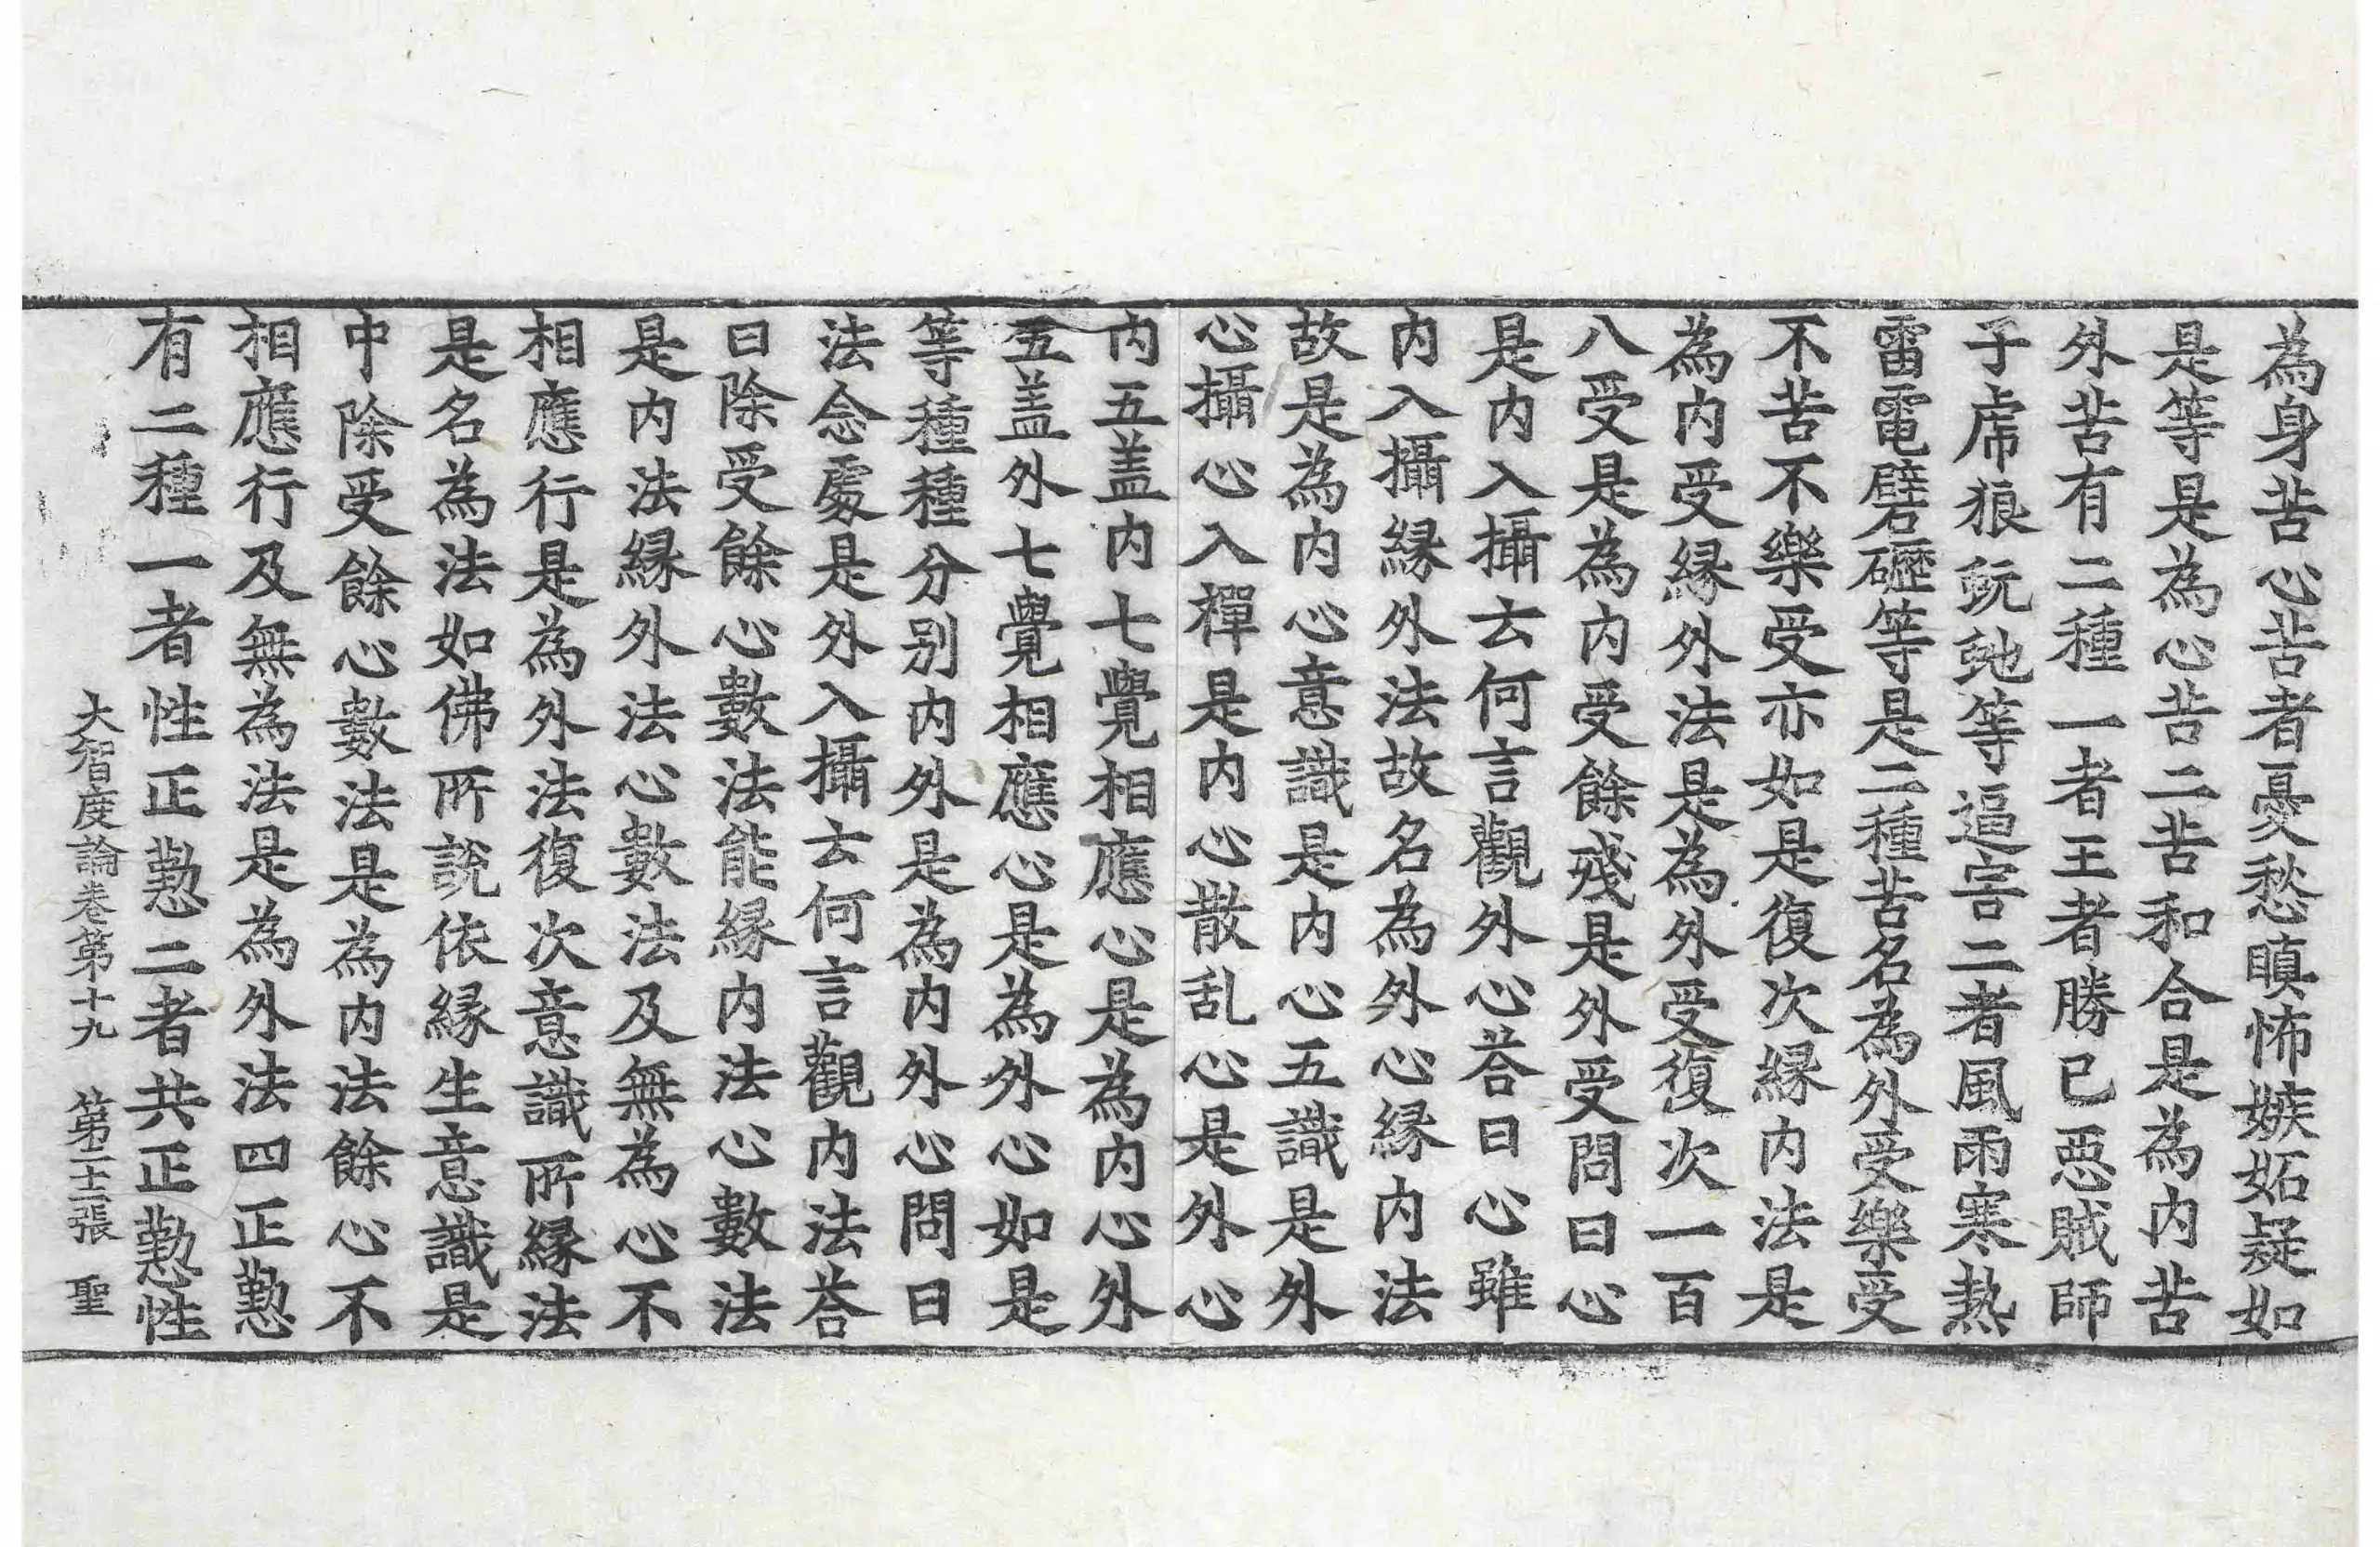 為身苦心苦者憂愁瞋怖嫉妬疑如
是等是為心苦二苦和合是為內苦
外苦有二種一者王者勝己惡賊師
子虎狼蚖虵等逼害二者風雨寒熱
雷電礔礰等是二種苦名為外受樂受
不苦不樂受亦如是復次緣內法是
為內受緣外法是為外受復次一百
八受是為內受餘殘是外受問曰心
是內入攝云何言觀外心荅曰心雖
內入攝緣外法故名為外心緣內法
故是為內心意識是內心五識是外
心攝心入禪是內心散乱心是外心
內五盖內七覺相應心是為內心外
五盖外七覺相應心是為外心如是
等種種分別內外是為內外心問曰
法念處是外入攝云何言觀內法荅
曰除受餘心數法能緣內法心數法
是內法緣外法心數法及無為心不
相應行是為外法復次意識所緣法
是名為法如佛所說依緣生意識是
中除受餘心數法是為內法餘心不
相應行及無為法是為外法四正懃
有二種一者性正懃二者共正懃性
大智度論卷第十九 第二十二張 聖